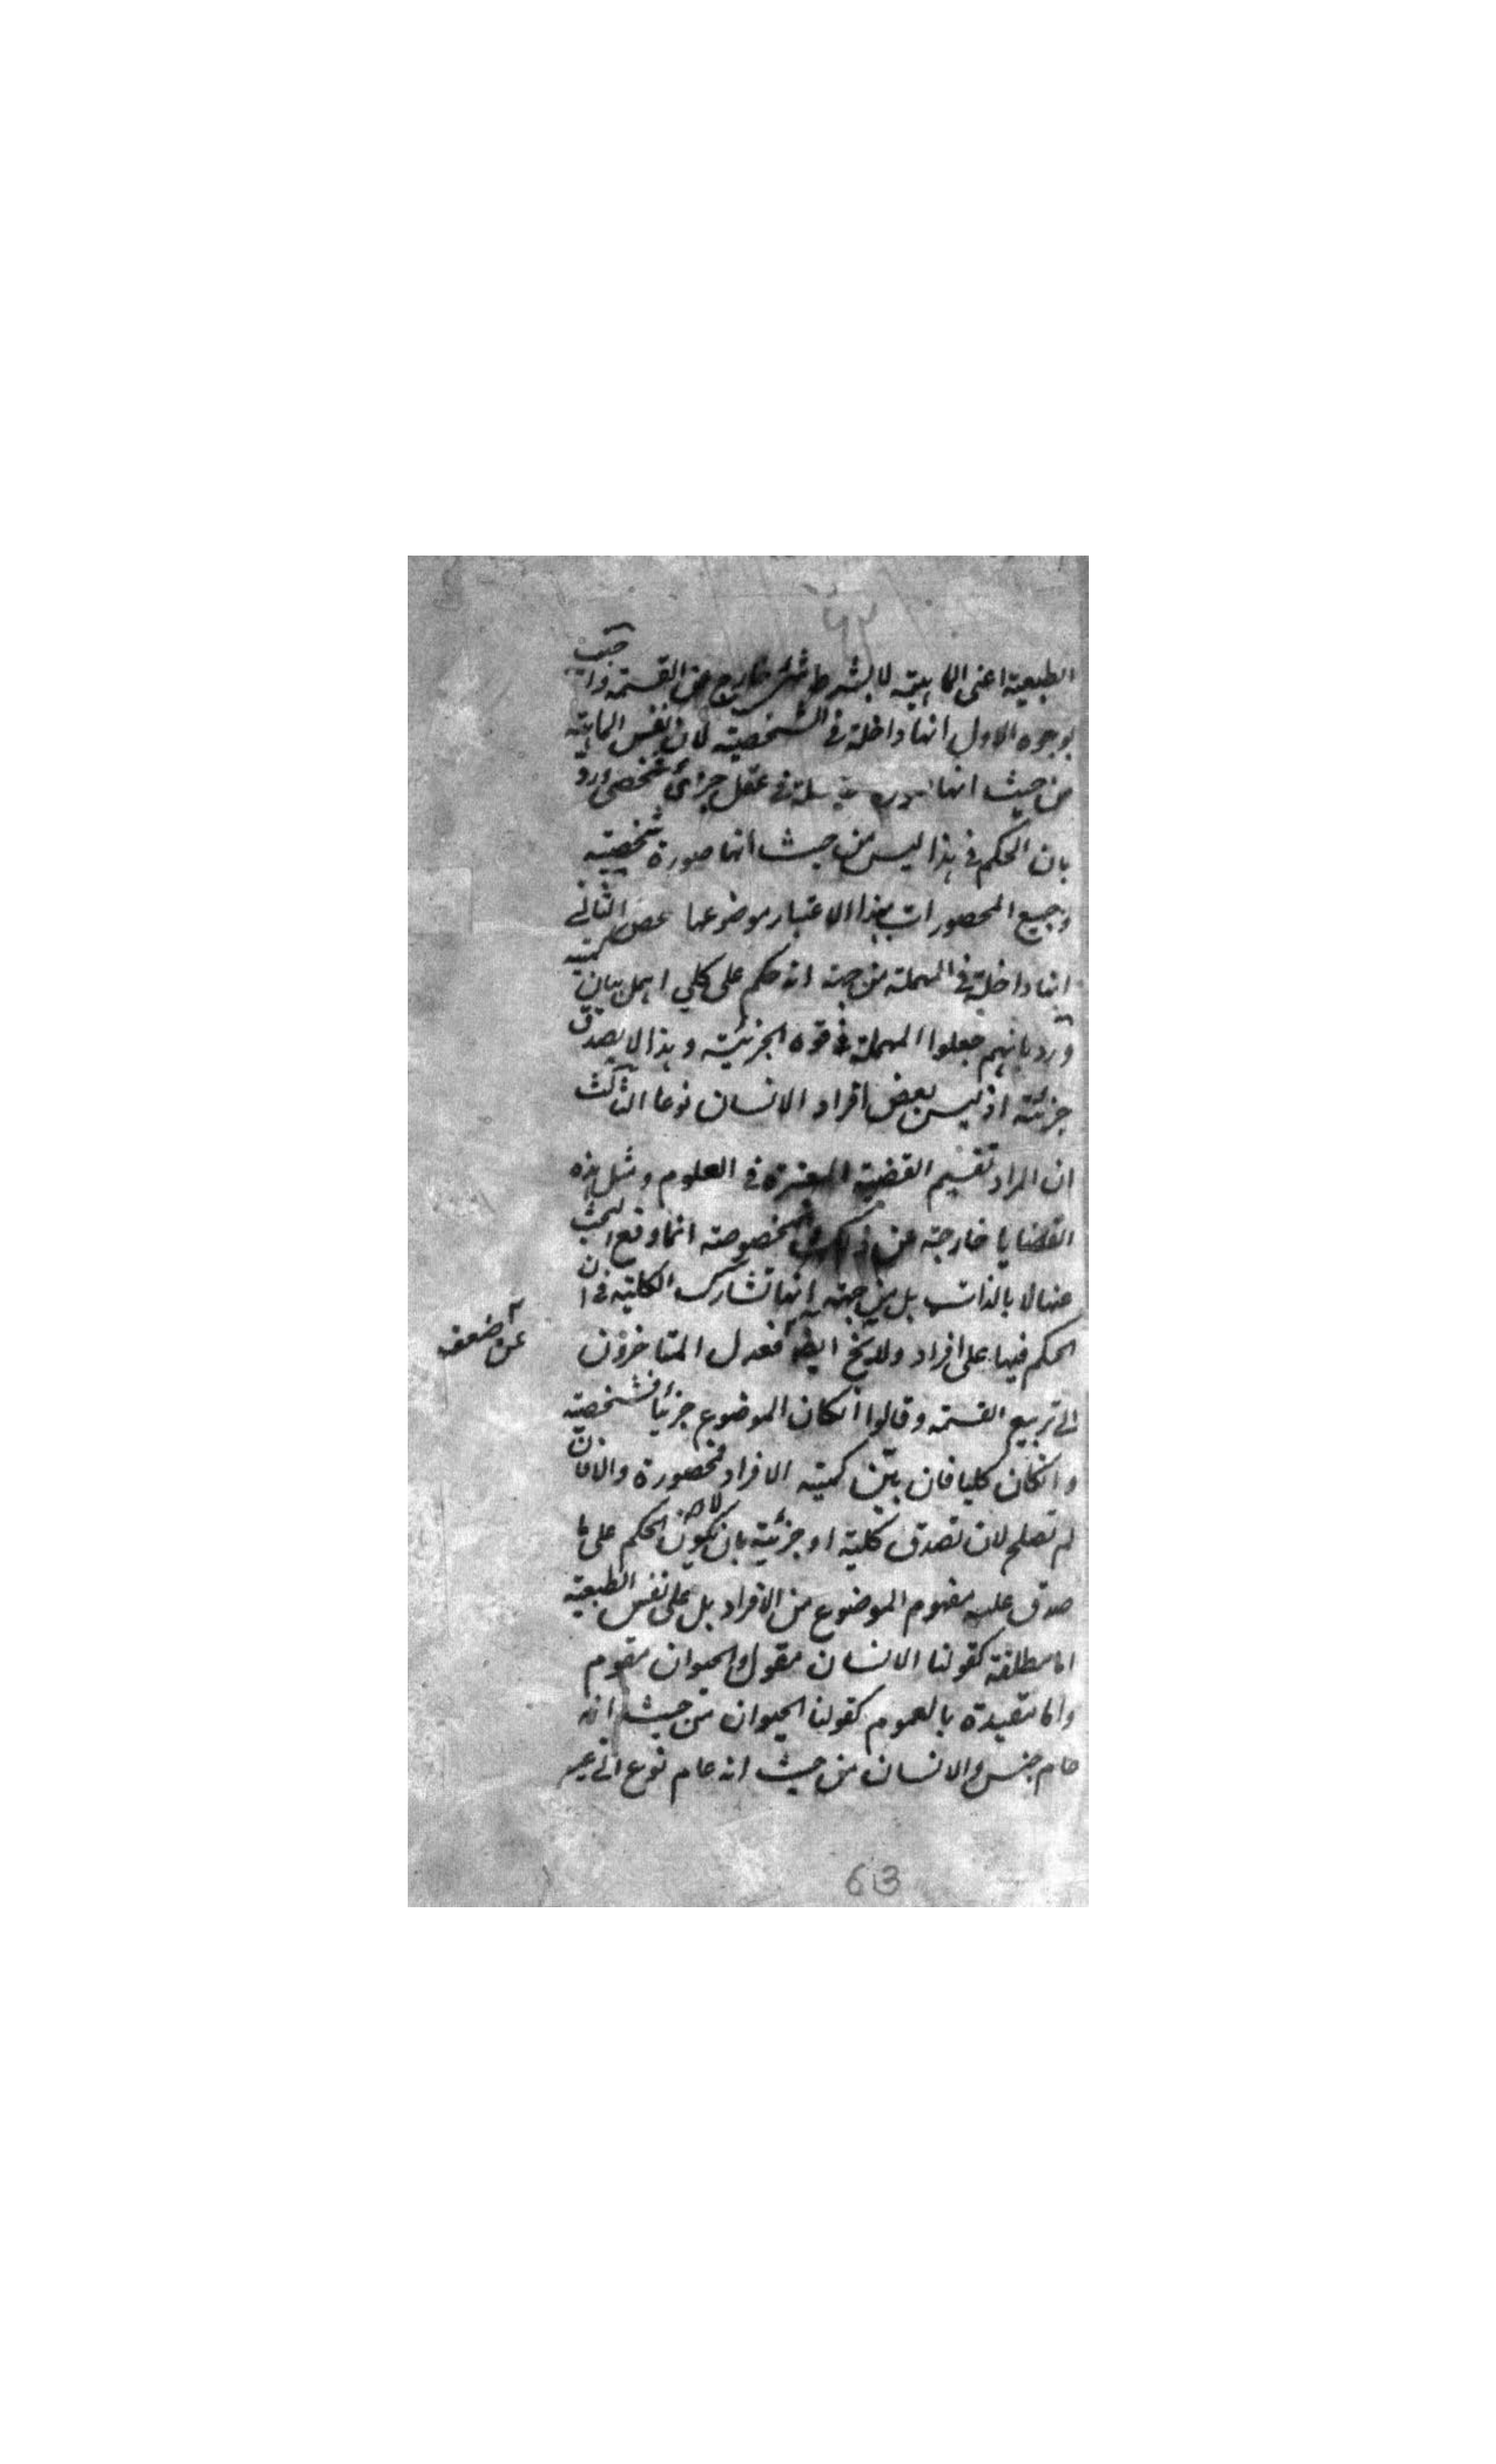 ٦٣
الطبيعية اعنى الماهية لا بشرط شئ خارج عن القسمة واجيب
بوجوه الاول انها داخلة فى الشخصية لان نفس الماهية
من حيث انها صورة فى عقل جزئى شخصى ورد
بان الحكم فى هذا ليس من حيث انها صورة شخصية
وجميع المحصورات بهذا الاعتبار موضوعها الثانى
انها داخلة فى المهملة من جهة انه حكم على كلي اهمل بيان كميته
ورد بانهم جعلوا المهملة فى قوة الجزئية وهذا لا يصدق
جزئية اذ ليس بعض افراد الانسان نوعا الثالث
ان المراد تقسيم القضية المعتبرة فى العلوم ومثل هذه
القضايا خارجة عن ذلك والمخصوصة انما وقع البحث
عنها لا بالذات بل من جهة انها تشارك الكلية فى ان
الحكم فيها على افراد ولا يخ ايضا فعدل المتاخرون
عن ضعف
الى تربيع القسمة وقالوا انكان الموضوع جزئيا فشخصية
وانكان كليا فان بين كمية الافراد فمحصورة والا فان
لم تصلح لان تصدق كلية او جزئية بان لا يكون الحكم على ما
صدق عليه مفهوم الموضوع من الافراد بل على نفس الطبيعية
اما مطلقة كقولنا الانسان مقول والحيوان مقوم
واما مقيدة بالعموم كقولنا الحيوان من حيث انه
عام جنس والانسان من حيث انه عام نوع الى غير
63